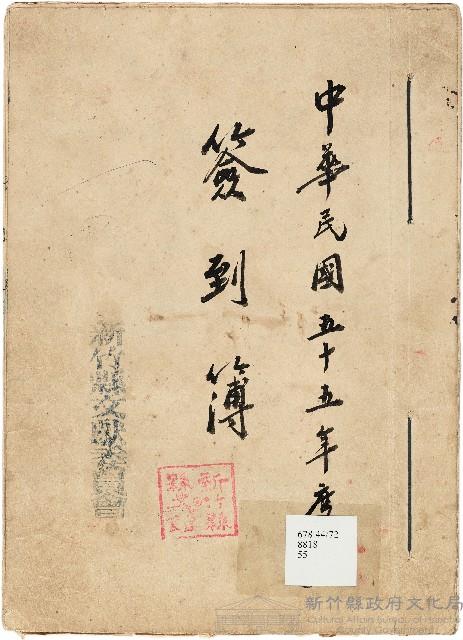 中華民國五十五年度
簽到簿
新竹縣文獻委員會
新竹縣
678.44/72
8818
55
新竹縣政府文化局
Cultural Affairs Bureau of Hsinchu
County Government